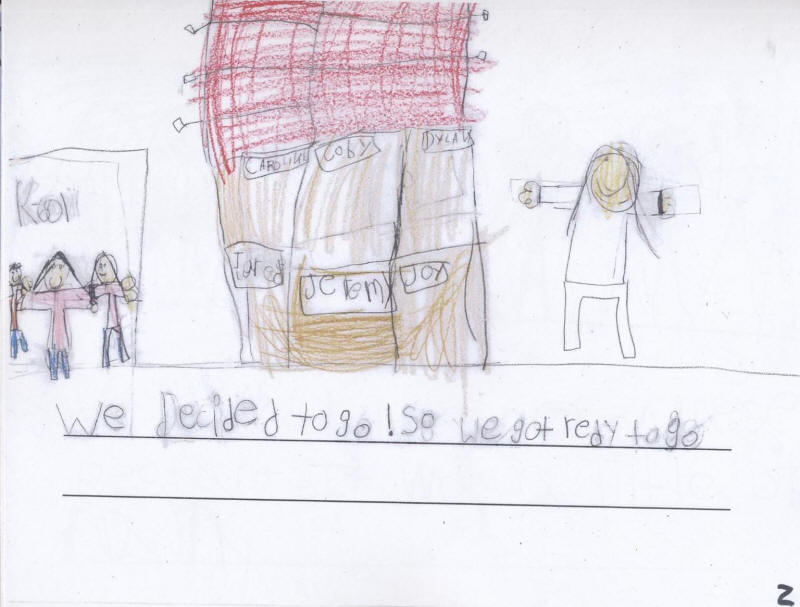 CAROLINE COBY DYLAN
Kool
Jared Jeremy Joy
We Decided to go! So we got redy to go
2